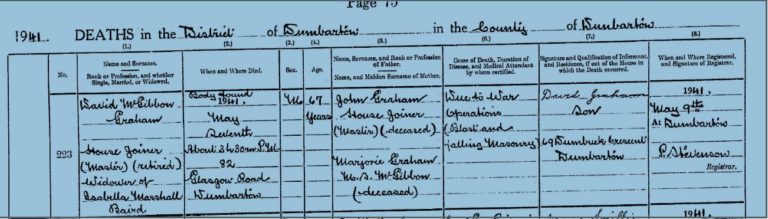 Page 75
1941. DEATHS in the District of Dumbarton in the County of Dumbarton
(1.) (2.) (3.) (4.) (5.) (6.) (7.) (8.)
No.
Name and Surname.
Rank or Profession, and whether
Single, Married, or Widowed.
When and Where Died.
Sex.
Age.
Name, Surname, and Rank or Profession
of Father.
Name, and Maiden Surname of Mother.
Cause of Death, Duration of
Disease, and Medical Attendant
by whom certified.
Signature and Qualification of Informant,
and Residence, if out of the House in
which the Death occurred.
When and Where Registered,
and Signature of Registrar.
223
David McGibbon
Graham
House Joiner
(Master) (retired)
Widower of
Isabella Marshall
Baird
Body found
1941.
May
Seventh
About 3h 30m P.M.
82
Glasgow Road
Dumbarton
M
67
Years
John Graham
House Joiner
(Master) (deceased)
Marjorie Graham
M.S. McGibbon
(deceased)
Due to War
Operations
(Blast and
falling Masonry)
David Graham
Son
69 Dumbuck Crescent
Dumbarton
1941.
May 9th
At Dumbarton
P. Stevenson
Registrar.
1941